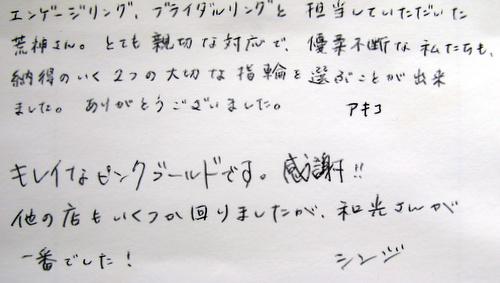 エンゲージリング、ブライダルリングと 担当していただいた
荒神さん。とても親切な対応で、優柔不断な私たちも、
納得のいく2つの大切な指輪を選ぶことが出来
ました。ありがとうございました。 アキコ
キレイなピンクゴールドです。感謝!!
他の店もいくつか回りましたが、和光さんが
一番でした! シンジ